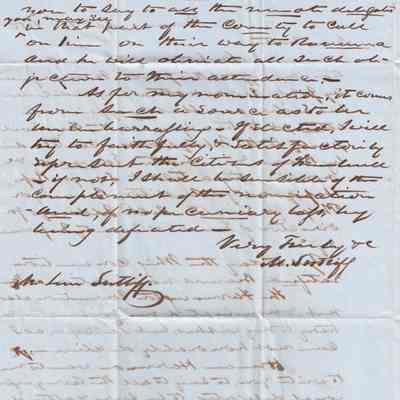 you to say to all the delegates
you may see
in that part of the County to call
on him on their way to Ravenna
and he will obviate all such ob-
jections to their attendance —
As for my nomination, it comes
from such a source as to be
unembarrassing — If elected, I will
try to faithfully & satisfactorily
represent the Citizens of the
if not, I shall be
compliment of the nomination
and, if no pecuniary loss, by
being defeated —
Very Truly &c
M. Sutliff
Mr Levi Sutliff.